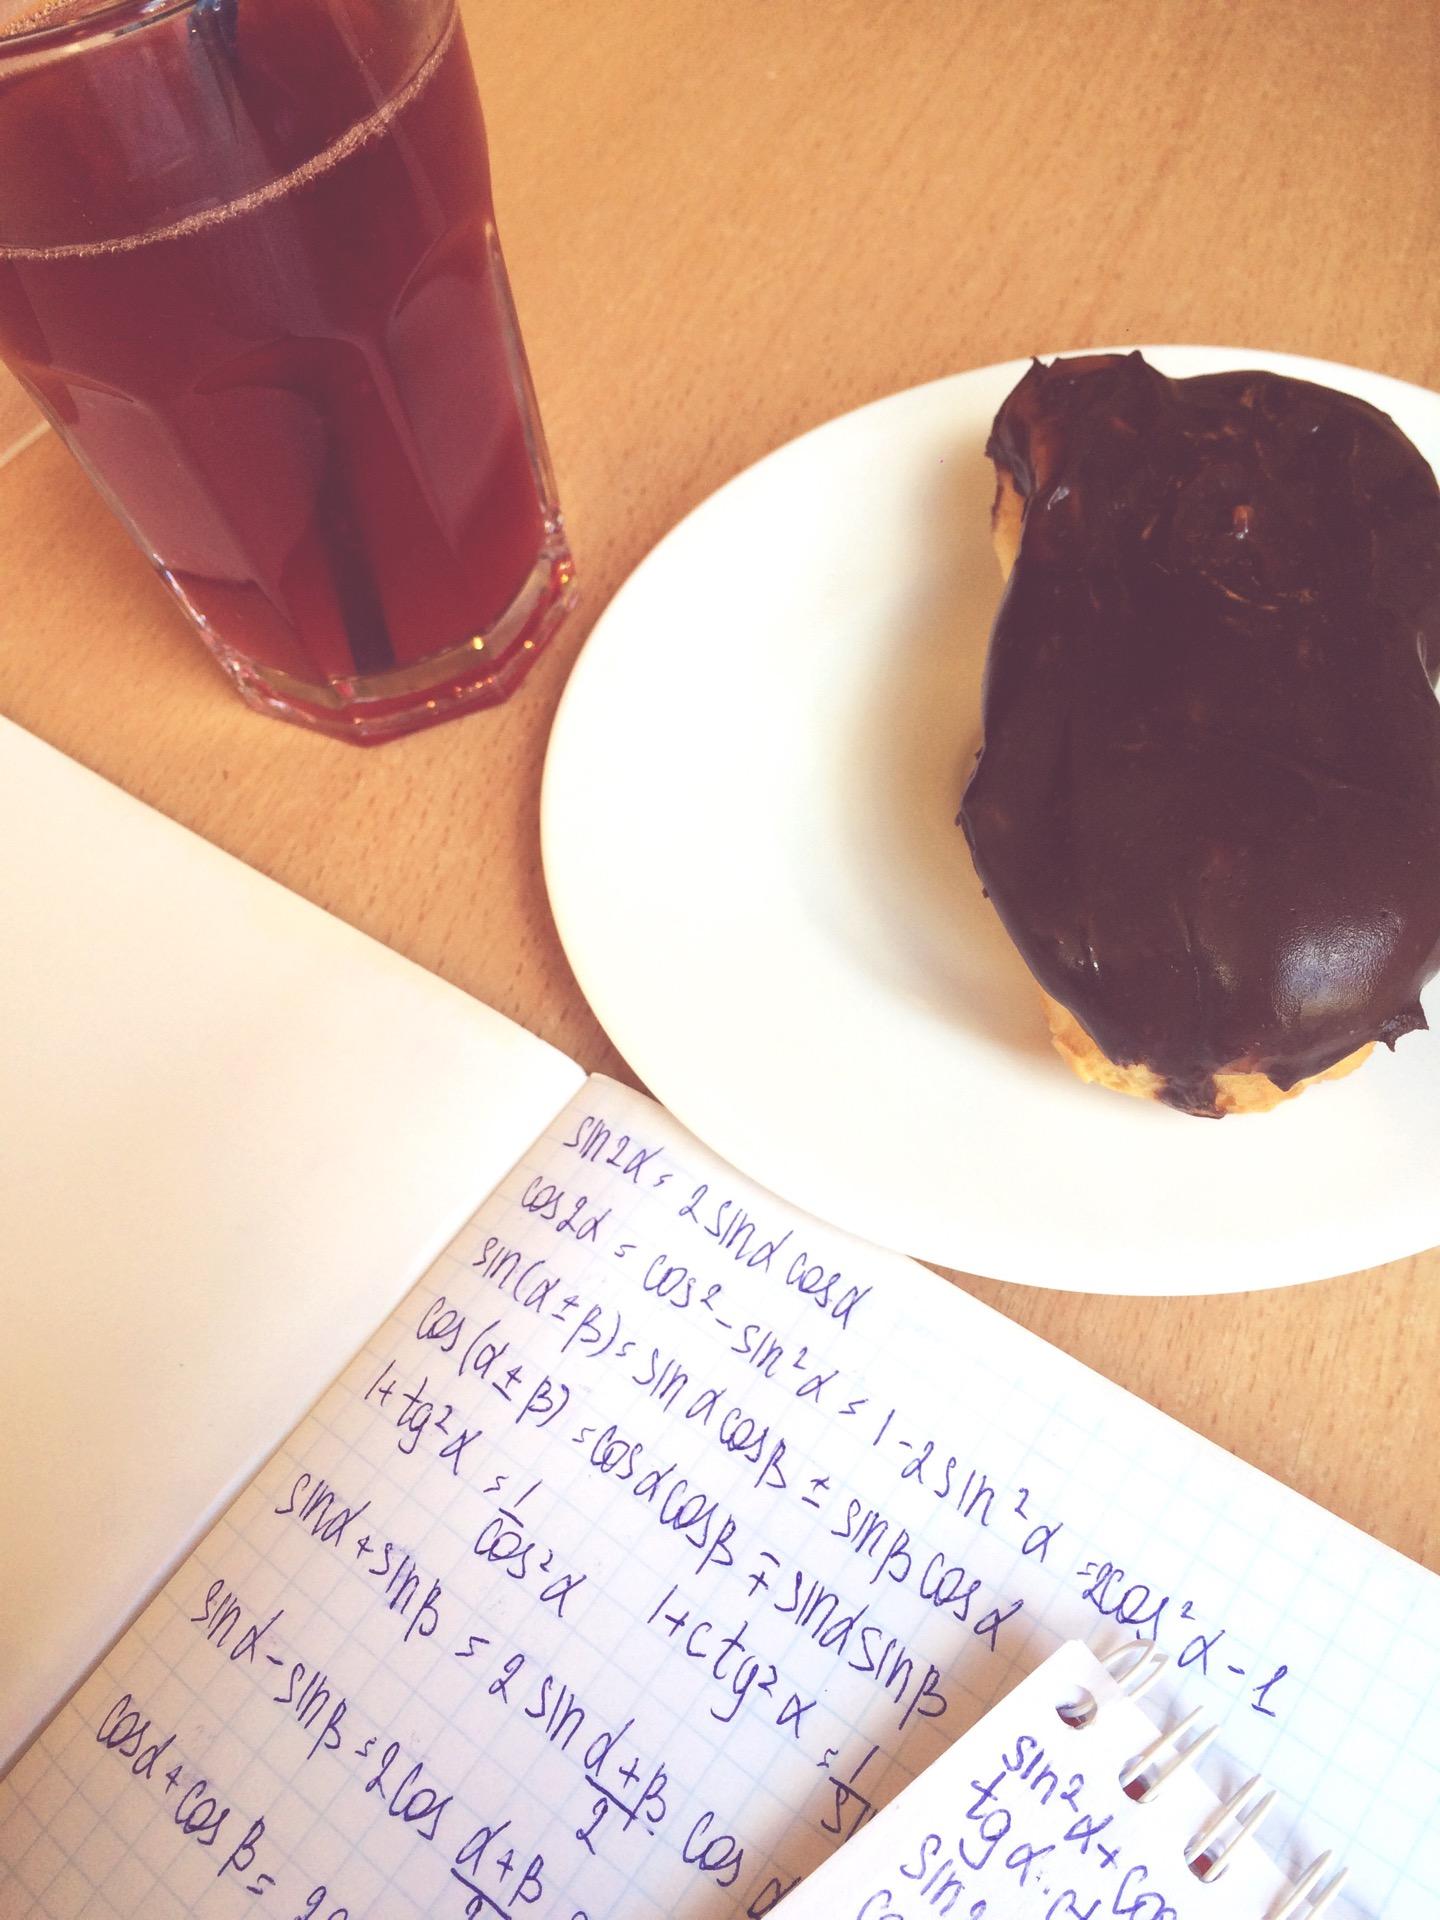 sin2α = 2sinα cosα
cos2α = cos² - sin²α = 1 - 2sin²α = 2cos²α - 1
sin(α ± β) = sinα cosβ ± sinβ cosα
cos(α ± β) = cosα cosβ ∓ sinα sinβ
1 + tg²α = 1/cos²α 1 + ctg²α = 1/
sinα + sinβ = 2 sin (α+β)/2 · cos α
sinα - sinβ = 2cos (α+β)/2
cosα + cosβ = 2
sin²α +
tgα ·
sin2